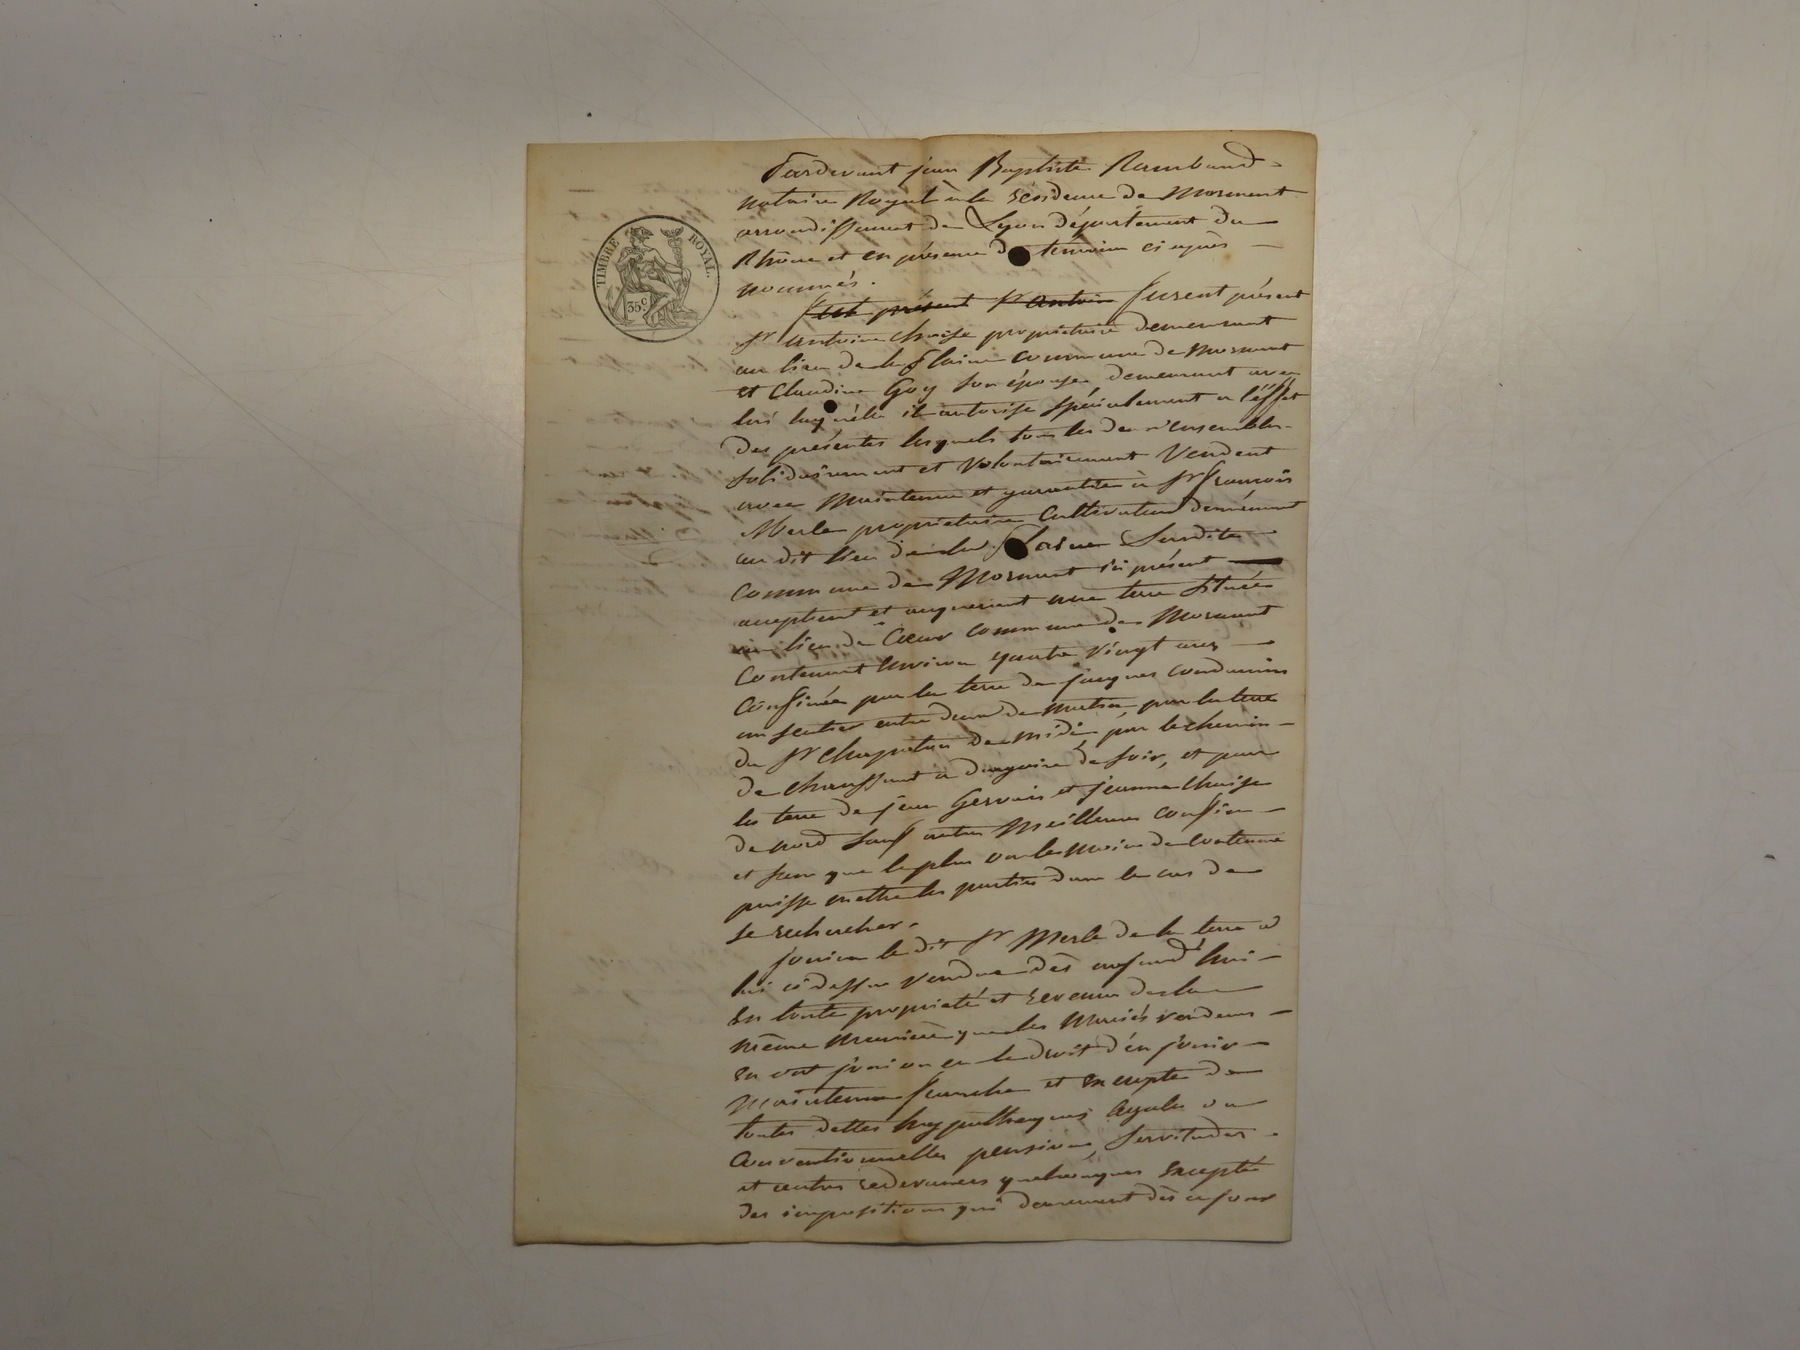 TIMBRE ROYAL.
35c
Pardevant jean Baptiste Rambaud
notaire Royal à la résidence de Mornant
arrondissement de Lyon département du
Rhône et en présence de temoins ci après
nommés.
fut présent Sr antoine furent présent
Sr antoine Chaize propriétaire demeurant
au lieu de la plaine commune de Mornant
et Claudine Goy son épouse, demeurant avec
lui laquelle il autorise spécialement a l'éffet
des présentes lesquels tous les deux ensembles
solidairement et volontairement Vendent
avec Maintenue et garantie à Sr françois
Merle propriétaire Cultivateur demeurant
au dit lieu de la plaine Susdite
commune de Mornant ici présent
acceptent et acquerient une terre Située
au lieu de Cœur commune de Mornant
Contenant environ quatre Vingt ares
Confinée par la terre de jacques condamin
un sentier entre deux de matin, par la terre
du Sr Chapelus de midi, par le chemin
de chaussant a de soir, et par
la terre de jean Gervais et jeanne Chaize
de nord Sauf autres Meilleurs confins
et sans que le plus ou le moins de Contenue
puisse mettre les parties dans le cas de
se rechercher.
jouira le dit Sr Merle de la terre a
lui ci dessus vendue dès aujourd'hui
en toute propriété et revenu de la
même manière que les Mariés vendeurs
en ont joui ou eu le droit d'en jouir
Maintenue franche et exempte de
toutes dettes hypothèques légale ou
Conventionnelles pensions, Servitudes
et autres redevances quelconques excepté
des impositions qui demeurent dès ce jour